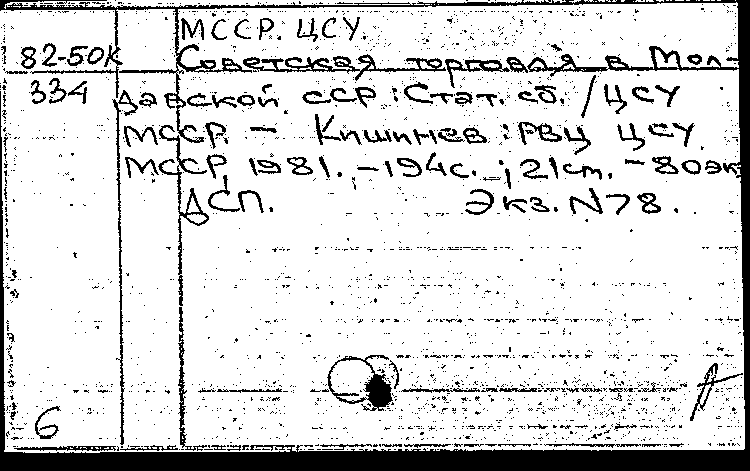 МССР. ЦСУ.
82-50К Советская торговля в Мол-
334 давской ССР : Стат. сб. / ЦСУ
МССР. - Кишинев : РВЦ ЦСУ
МССР, 1981. - 194 с. ; 21 см. - 80 эк
ДСП. Экз. N78.
6